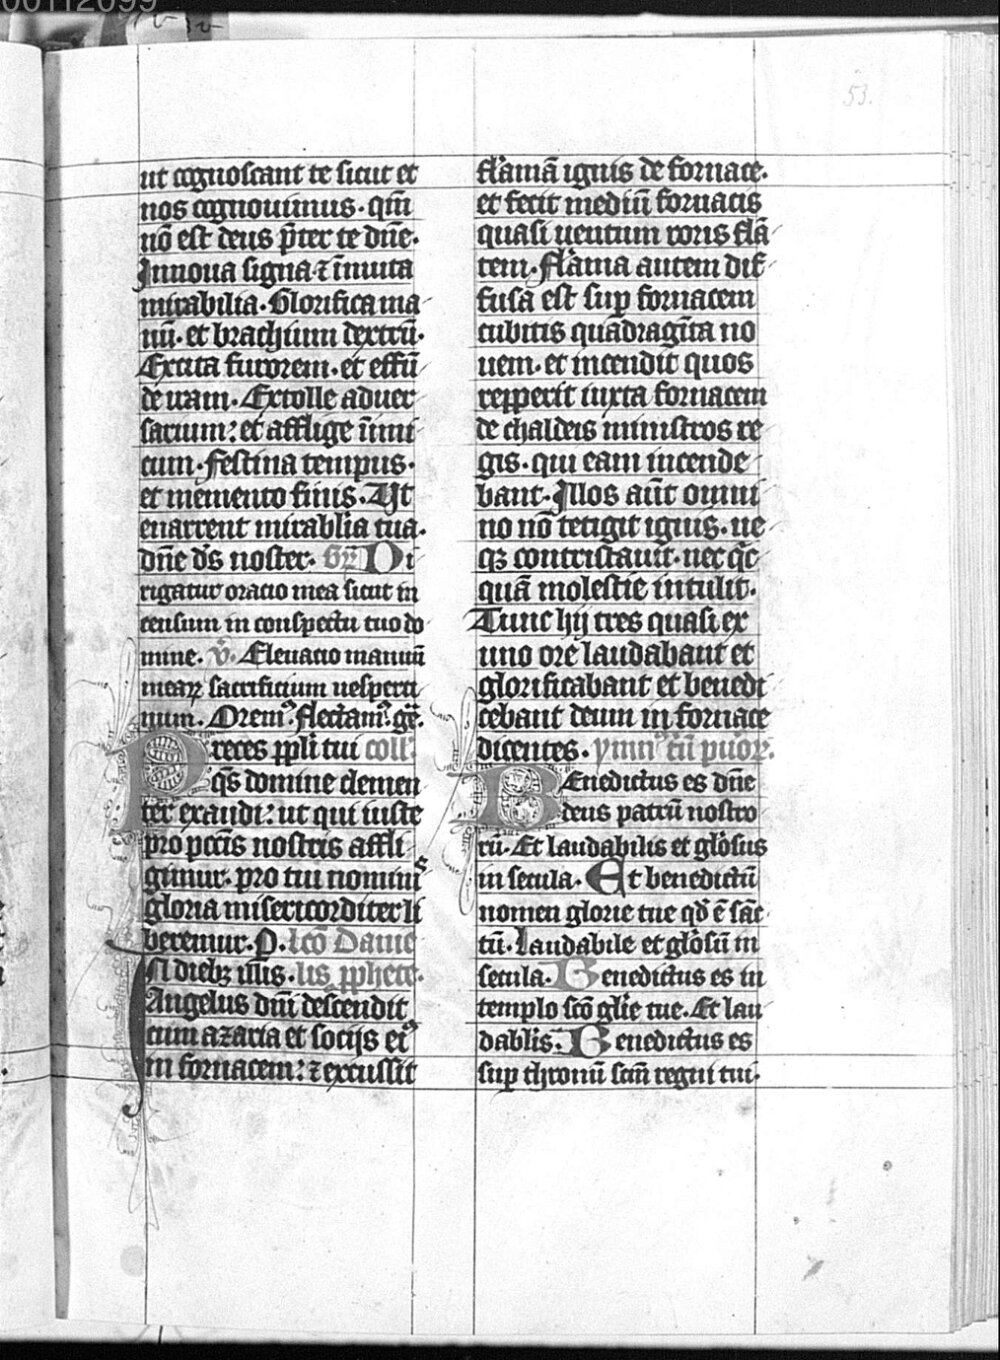 00112099
53.
ut cognoscant te sicut et
nos cognouimus. qm̄
nō est deus p̄ter te dn̄e.
Innoua signa ⁊ īmuta
mirabilia. Glorifica ma
nū. et brachium dextrū.
Excita furorem. et effū
de iram. Extolle aduer
sarium: et afflige īimi
cum. Festina tempus.
et memento finis. Ut
enarrent mirabl̓ia tua.
dn̄e ds̄ noster. Gr̄ Di
rigatur oracio mea sicut in
censum in conspectu tuo do
mine. v̓. Eleuacio manuū
mearꝝ sacrificium uesperti
num. Orem⁹. flectam⁹. gē.
Preces ppl̓i tui coll̓.
qs̄ domine clemen
ter exaudi: ut qui iuste
pro pctīs nostris affli
gimur. pro tui nominis
gloria misericorditer li
beremur. P. lcō Danie
IN diebꝫ illis. lis ꝓphete.
Angelus dnī descendit
cum azaria et socijs ei⁹
in fornacem: ⁊ excussit
fla̓mā ignis de fornace.
et fecit mediū fornacis
quasi uentum roris flā
tem. Fla̓ma autem dif
fusa est sup fornacem
cubitis quadragīta no
uem. et incendit quos
repperit iuxta fornacem
de chaldeis ministros re
gis. qui eam incende
bant. Illos aūt omni
no nō tetigit ignis. ne
qꝫ contristauit. nec qͥc
quā molestie intulit.
Tunc hij tres quasi ex
uno ore laudabant et
glorificabant et benedi
cebant deum in fornace
dicentes. ymn⁹ tiū pu̓oꝝ.
BEnedictus es dn̄e
deus patrū nostro
rū. Et laudabilis et glo̓sus
in secula. Et benedictū
nomen glorie tue qd̓ ē sāc
tū. Laudabile et glo̓sū in
secula. Benedictus es in
templo scō glīe tue. Et lau
dabl̓is. Benedictus es
sup thronū scm̄ regni tui.